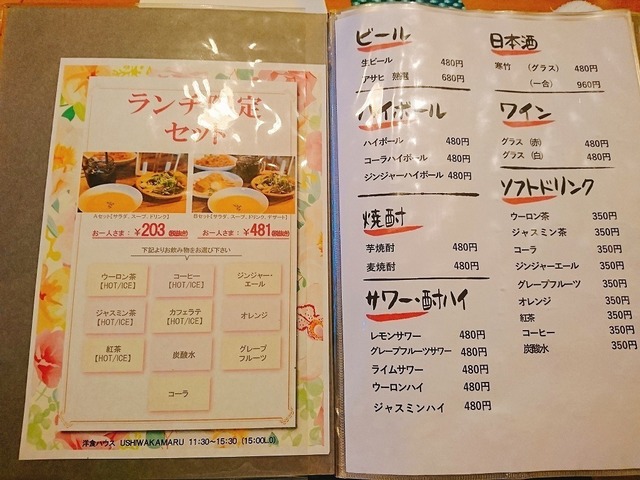 ランチ限定
セット
Aセット【サラダ、スープ、ドリンク】
お一人さま：￥203
Bセット【サラダ、スープ、ドリンク、デザート】
お一人さま：￥481
下記よりお飲み物をお選び下さい
ウーロン茶
【HOT/ICE】
コーヒー
【HOT/ICE】
ジンジャー・
エール
ジャスミン茶
【HOT/ICE】
カフェラテ
【HOT/ICE】
オレンジ
紅茶
【HOT/ICE】
炭酸水
グレープ
フルーツ
コーラ
洋食ハウス USHIWAKAMARU 11:30～15:30 (15:00L.O)
ビール
生ビール 480円
アサヒ 熟撰 680円
ハイボール
ハイボール 480円
コーラハイボール 480円
ジンジャーハイボール 480円
焼酎
芋焼酎 480円
麦焼酎 480円
サワー・酎ハイ
レモンサワー 480円
グレープフルーツサワー 480円
ライムサワー 480円
ウーロンハイ 480円
ジャスミンハイ 480円
日本酒
寒竹 (グラス) 480円
(一合) 960円
ワイン
グラス (赤) 480円
グラス (白) 480円
ソフトドリンク
ウーロン茶 350円
ジャスミン茶 350円
コーラ 350円
ジンジャーエール 350円
グレープフルーツ 350円
オレンジ 350円
紅茶 350円
コーヒー 350円
炭酸水 350円